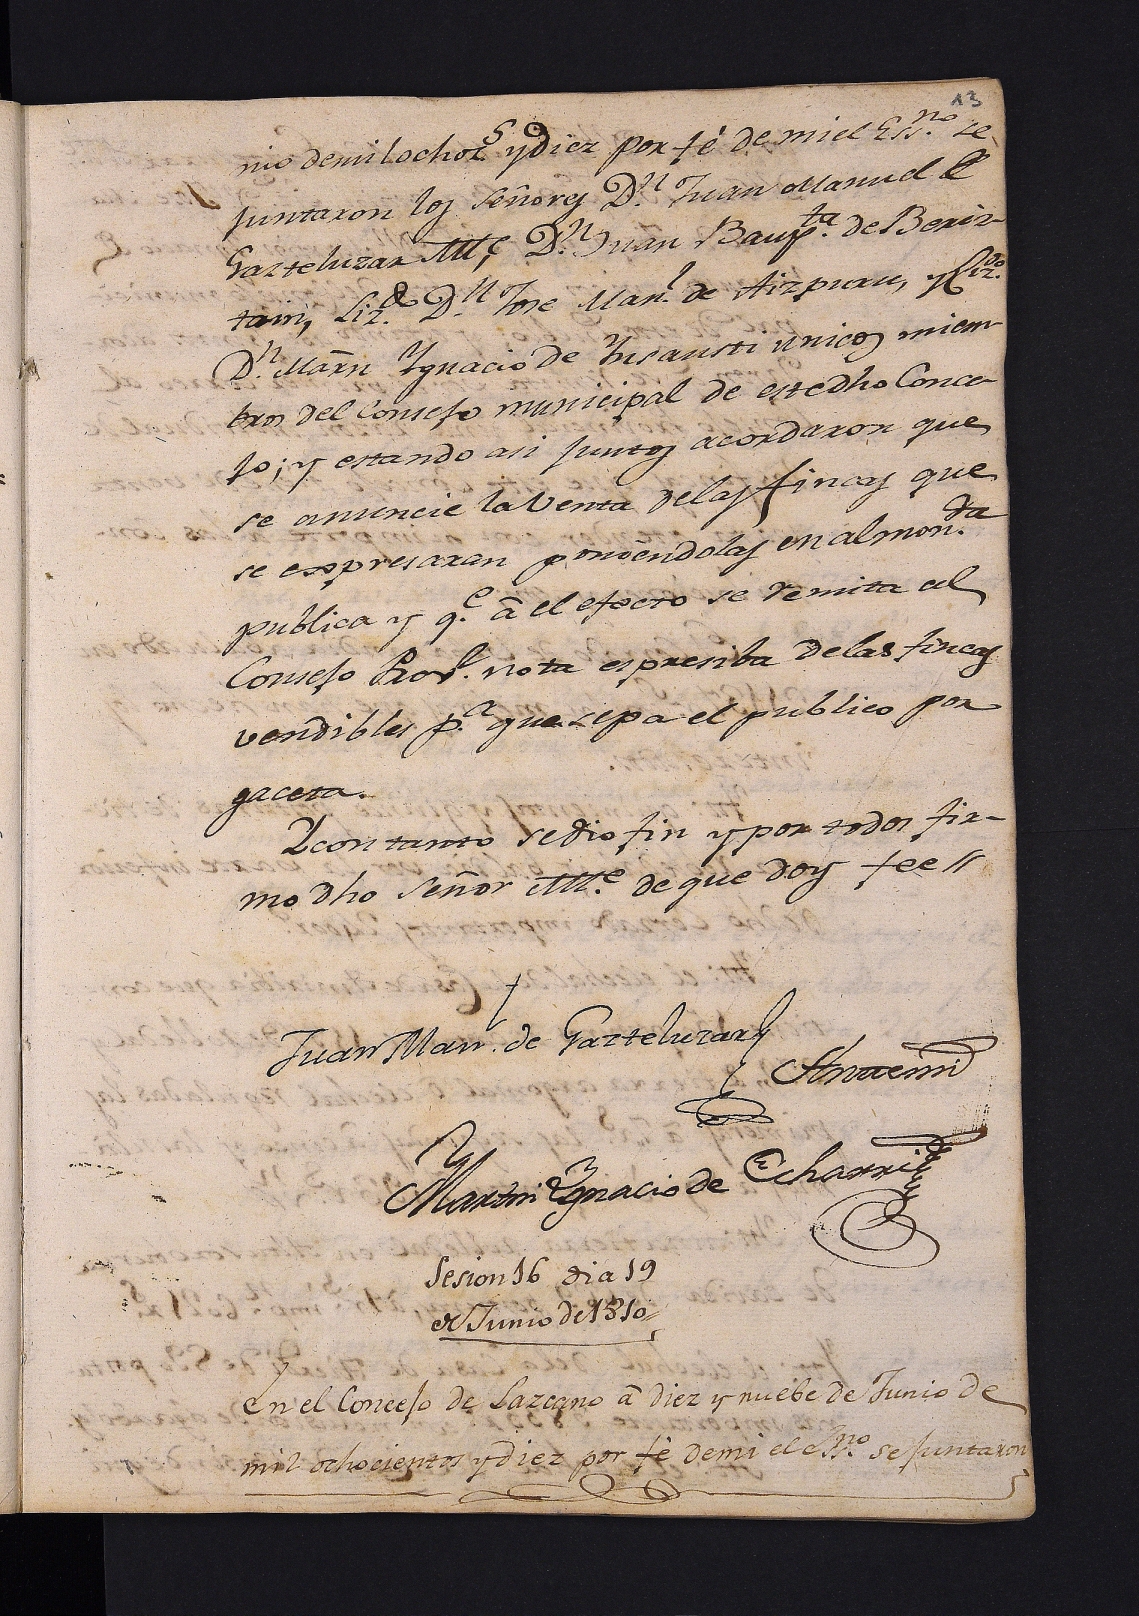 13
nio de mil ochos.ˢ y diez por fé de mi el Ess.ⁿᵒ se
juntaron los señores D.ⁿ Juan Manuel de
Gazteluzar Allᵉ, D.ⁿ Juan Baup.ᵗᵃ de Beriz-
tain, Liz.ᵈᵒ D.ⁿ Jose Man.ˡ de Aizpuru, y Liz.ᵈᵒ
D.ⁿ Marñ Ygnacio de Insausti unicos miem-
bros del Consejo municipal de este dho Conce-
jo; y estando asi juntos acordaron que
se anuncie la Venta de las fincas que
se expresaran poniendolas en almon.ᵈᵃ
publica y q.ᵉ â el efecto se remita al
Consejo Prov.ˡ nota espresiba de las fincas
vendibles p.ᵃ que sepa el publico por
gaceta.
Y con tanto se dio fin y por todos fir-
mo dho señor Allᵉ. de que doy fee //
Juan Man.ˡ de Gazteluzar
Ante mi
Martin Ygnacio de Echarri
Sesion 16 dia 19
de Junio de 1810
En el Concejo de Lazcano â diez y nuebe de Junio de
mil ochocientos y diez por fé de mi el Ess.ⁿᵒ se juntaron